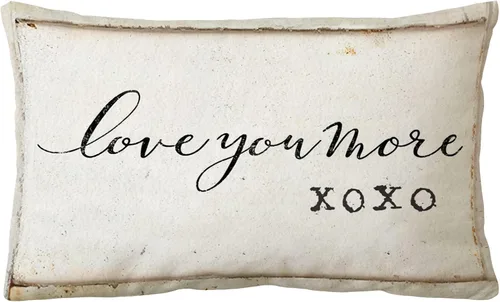 love you more
xoxo